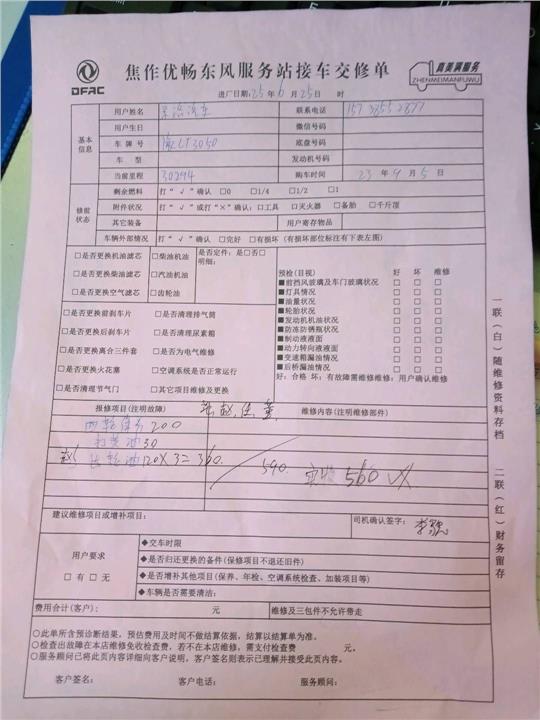 DFAC
焦作优畅东风服务站接车交修单
真美满服务
ZHENMEIMANFUWU
进厂日期:25年6月25日 时
基本信息
用户姓名
联系电话
用户生日
微信号码
车牌号
LT3050
底盘号码
车型
发动机号码
当前里程 30294
购车时间 23年9月5日
修前状态
剩余燃料 打“√”确认 □0 □1/4 □1/2 □1
附件状况 打“√”或打“×”确认:□工具 □灭火器 □备胎 □千斤顶
其它装备
用户寄存物品
车辆外部情况 打“√”确认 □完好 □有损坏 (有损坏部位标注有下表左图)
□是否更换机油滤芯 □柴油机油 是否定件:是□否□
明细:
□是否更换柴油滤芯 □汽油机油
□是否更换空气滤芯 □齿轮油
□是否更换前刹车片 □是否清理排气筒
□是否更换后刹车片 □是否清理尿素箱
□是否更换离合三件套 □是否为电气维修
□是否更换火花塞 □空调系统是否正常运行
□是否清理节气门 □其它项目维修及更换
预检(目视) 好 坏 维修
■前挡风玻璃及车门玻璃状况 □ □ □
■灯具情况 □ □ □
■油量状况 □ □ □
■轮胎状况 □ □ □
■发动机机油状况 □ □ □
■防冻防锈瓶状况 □ □ □
■制动液液面 □ □ □
■动力转向液液面 □ □ □
■变速箱漏油情况 □ □ □
■后桥漏油情况 □ □ □
好:合格 坏:有故障需维修维修:用户确认维修
报修项目(注明故障)
维修内容(注明维修部件)
200
30
齿轮油120×3=360.
590.
实收560
建议维修项目或增补项目:
司机确认签字:
用户要求
□有□无
◆交车时限
◆是否归还更换的备件(保修项目不退还旧件)
◆是否增补其他项目(保养、年检、空调系统检查、加装项目等)
◆车辆是否需要清洁:
费用合计(客户): 元 维修及三包件不允许带走
○此单所含预诊断结果,预估费用及时间不做结算依据,结算以结算单为准。
○检查出故障在本店维修免收检查费,若不在本店维修,需支付检查费 元。
○服务顾问已将此页内容详细向客户说明,客户签名则表示已理解并接受此页内容。
客户签名: 客户电话: 服务顾问:
一联(白)随维修资料存档
二联(红)财务留存